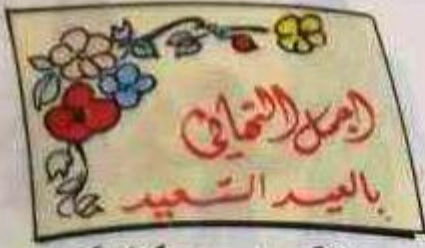 اجمل التهاني
بالعيد السعيد